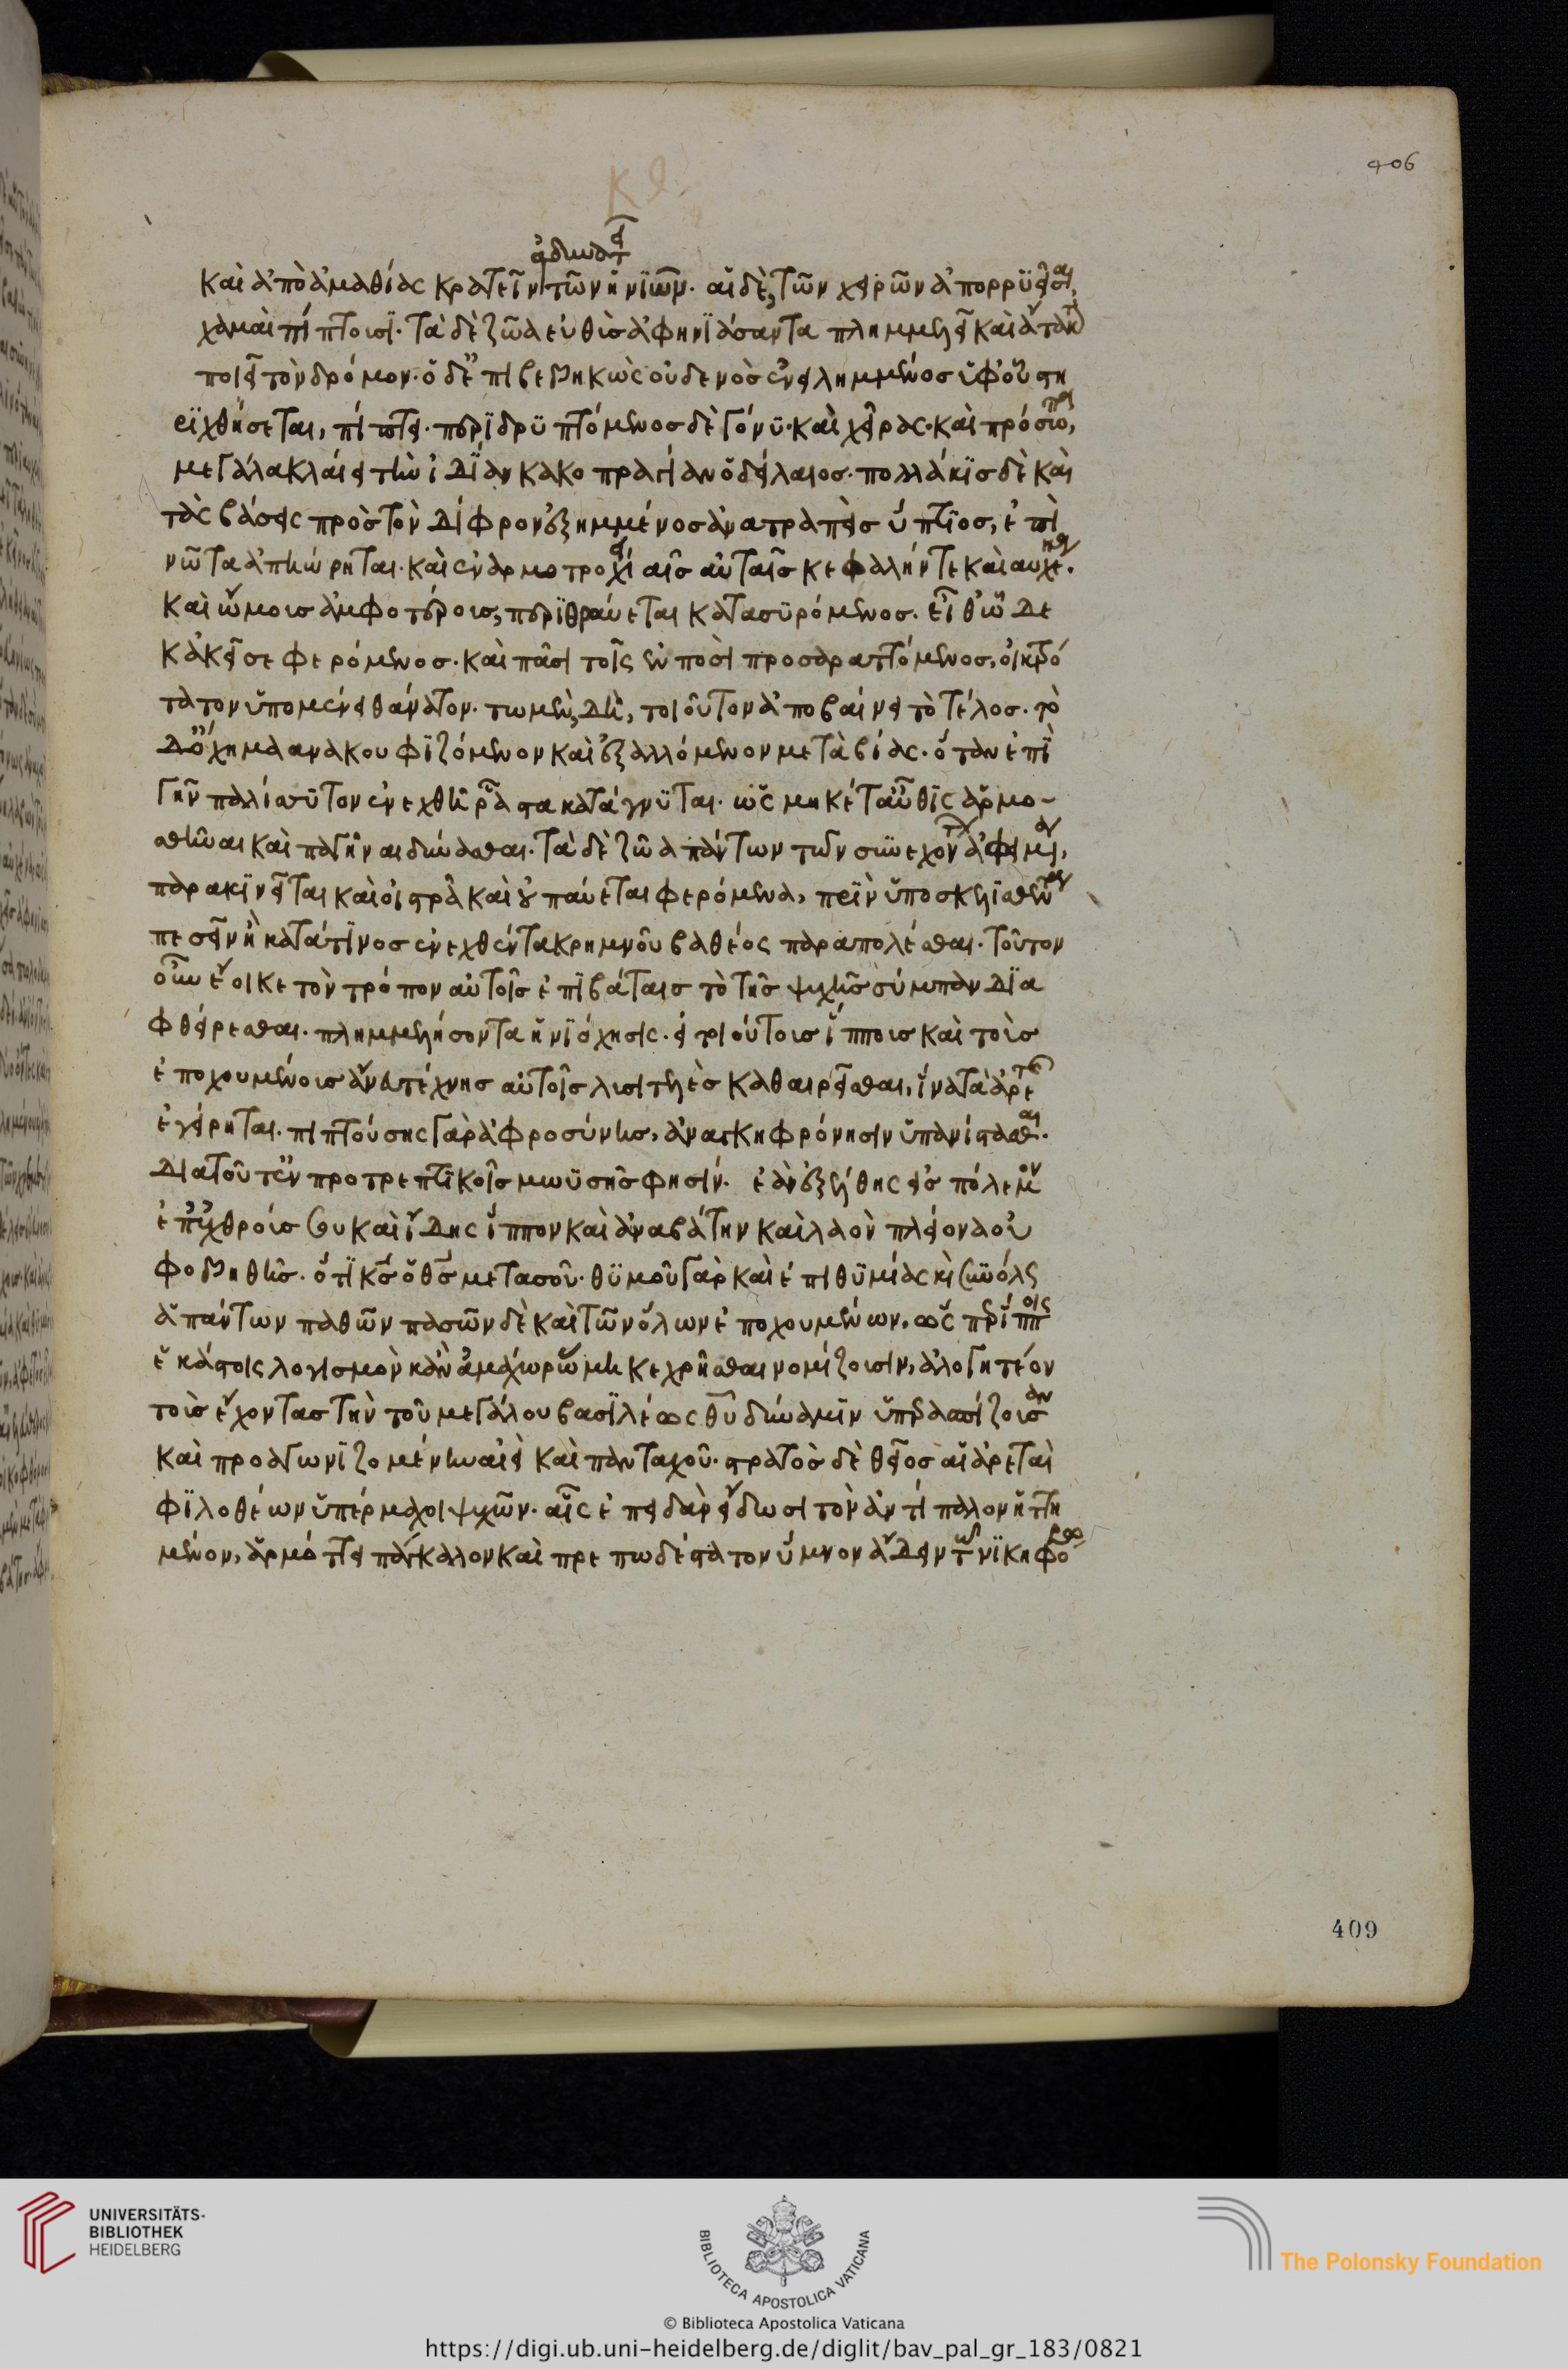 καὶ ἀπὸ ἀμαθίας κρατεῖν τῶν ἡνϊῶν ἀδυνατεῖ. αἱ δὲ, τῶν χειρῶν ἀπορρϋεῖσαι,
χαμαὶ πίπτουσϊ. τὰ δὲ ζῶα εὐθὺσ ἀφηνϊάσαντα πλημμελεῖ καὶ ἄτακτ
ποιεῖ τὸν δρόμον. ὁ δ' ἐπιβεβηκὼς οὐδενὸσ ἐνειλημμένοσ ὑφ' οὗ στη
ρϊχθήσεται, πίπτει. περϊδρϋπτόμενοσ δὲ γόνϋ. καὶ χεῖρας. καὶ πρόσωπον,
μεγάλα κλαίει τὴν ἰδΐαν κακοπραγίαν ὁ δείλαιοσ. πολλάκϊσ δὲ καὶ
τὰς βάσεις πρὸσ τὸν δίφρον ἐξημμένοσ ἀνατραπεὶσ ὕπτϊοσ, ἐπὶ
νῶτα ἀπηώρηται. καὶ ἐν ἁρμοτροχείαισ αὐταῖσ κεφαλήν τε καὶ αὐχένα.
καὶ ὤμοισ ἀμφοτέροισ, περϊθραύεται κατασϋρόμενοσ. εἶθ' ὧδε
κἀκεῖσε φερόμενοσ. καὶ πᾶσι τοῖς ἐν ποσὶ προσαραττόμενοσ, οἰκτρό
τατον ὑπομένει θάνατον. τω μὲν, δὴ, τοιοῦτον ἀποβαίνει τὸ τέλοσ. τὸ
δ' ὄχημα ανακουφϊζόμενον καὶ ἐξαλλόμενον μετὰ βίας. ὅταν ἐπῒ
γῆν παλίσσϋτον ἐνεχθῆ ρᾶστα κατάγνϋται. ὡς μηκέτ' αὖθϊς ἁρμο-
σθῆναι καὶ παγῆναι δύνασθαι. τὰ δὲ ζῶα πάντων τῶν συνεχόντων ἀφειμένα,
παρακϊνεῖται καὶ οἰστρᾶ καὶ οὐ παύεται φερόμενα, πρϊν ὑποσκελϊσθέντα
πεσεῖν ἢ κατά τϊνοσ ἐνεχθέντα κρημνοῦ βαθέος παραπολέσθαι. τοῦτον
οὖν ἔοικε τὸν τρόπον αὐτοῖσ ἐπϊβάταισ τὸ τῆσ ψυχῆσ σύμπαν δϊα
φθείρεσθαι. πλημμελήσοντα ἡνϊόχησις. εἰ τοιούτοισ ἵπποισ καὶ τοὶσ
ἐποχουμένοισ ἄνευ τέχνησ αὐτοῖσ λυσιτελὲσ καθαιρεῖσθαι, ἵνα τὰ ἀρετῆς
ἐγείρηται. πιπτούσης γὰρ ἀφροσύνησ, ἀνάγκη φρόνησιν ὑπανίστασθαι.
διατοῦτ' ἐν προτρεπτϊκοῖσ μωϋσῆσ φησίν. ἐὰν ἐξέλθης εἰσ πόλεμον
ἐπ' ἐχθροὺσ σου καὶ ἴδης ἵππον καὶ ἀναβάτην καὶ λαὸν πλείονα οὐ
φοβηθῆσ. ὅτϊ κσ ὁ θσ μετασοῦ. θϋμοῦ γὰρ καὶ ἐπιθϋμίας καὶ συνόλως
ἁπάντων παθῶν πασῶν δὲ καὶ τῶν ὅλων ἐποχουμένων, ὡς περ ἵπποις
ἑκάστοις λογισμὸν κἂν ἀμάχω ρώμη κεχρῆσθαι νομίζουσιν, ἀλογητέον
τοὺσ ἔχοντασ τὴν τοῦ μεγάλου βασϊλέως θυ δύναμϊν ὑπερασπίζουσαν
καὶ προαγωνϊζομένην αἰεὶ καὶ πανταχοῦ. στρατὸσ δὲ θεῖοσ αἱ ἀρεταὶ
φϊλοθέων ὑπέρμαχοι ψυχῶν. αἷς ἐπειδὰν εἴδωσι τὸν ἀντίπαλον ἡττη
μένον, ἁρμόττει πάγκαλον καὶ πρεπωδέστατον ὕμνον ἄδειν τῶ νϊκηφόρω
406
409
UNIVERSITÄTS-
BIBLIOTHEK
HEIDELBERG
BIBLIOTECA APOSTOLICA VATICANA
© Biblioteca Apostolica Vaticana
The Polonsky Foundation
https://digi.ub.uni-heidelberg.de/diglit/bav_pal_gr_183/0821